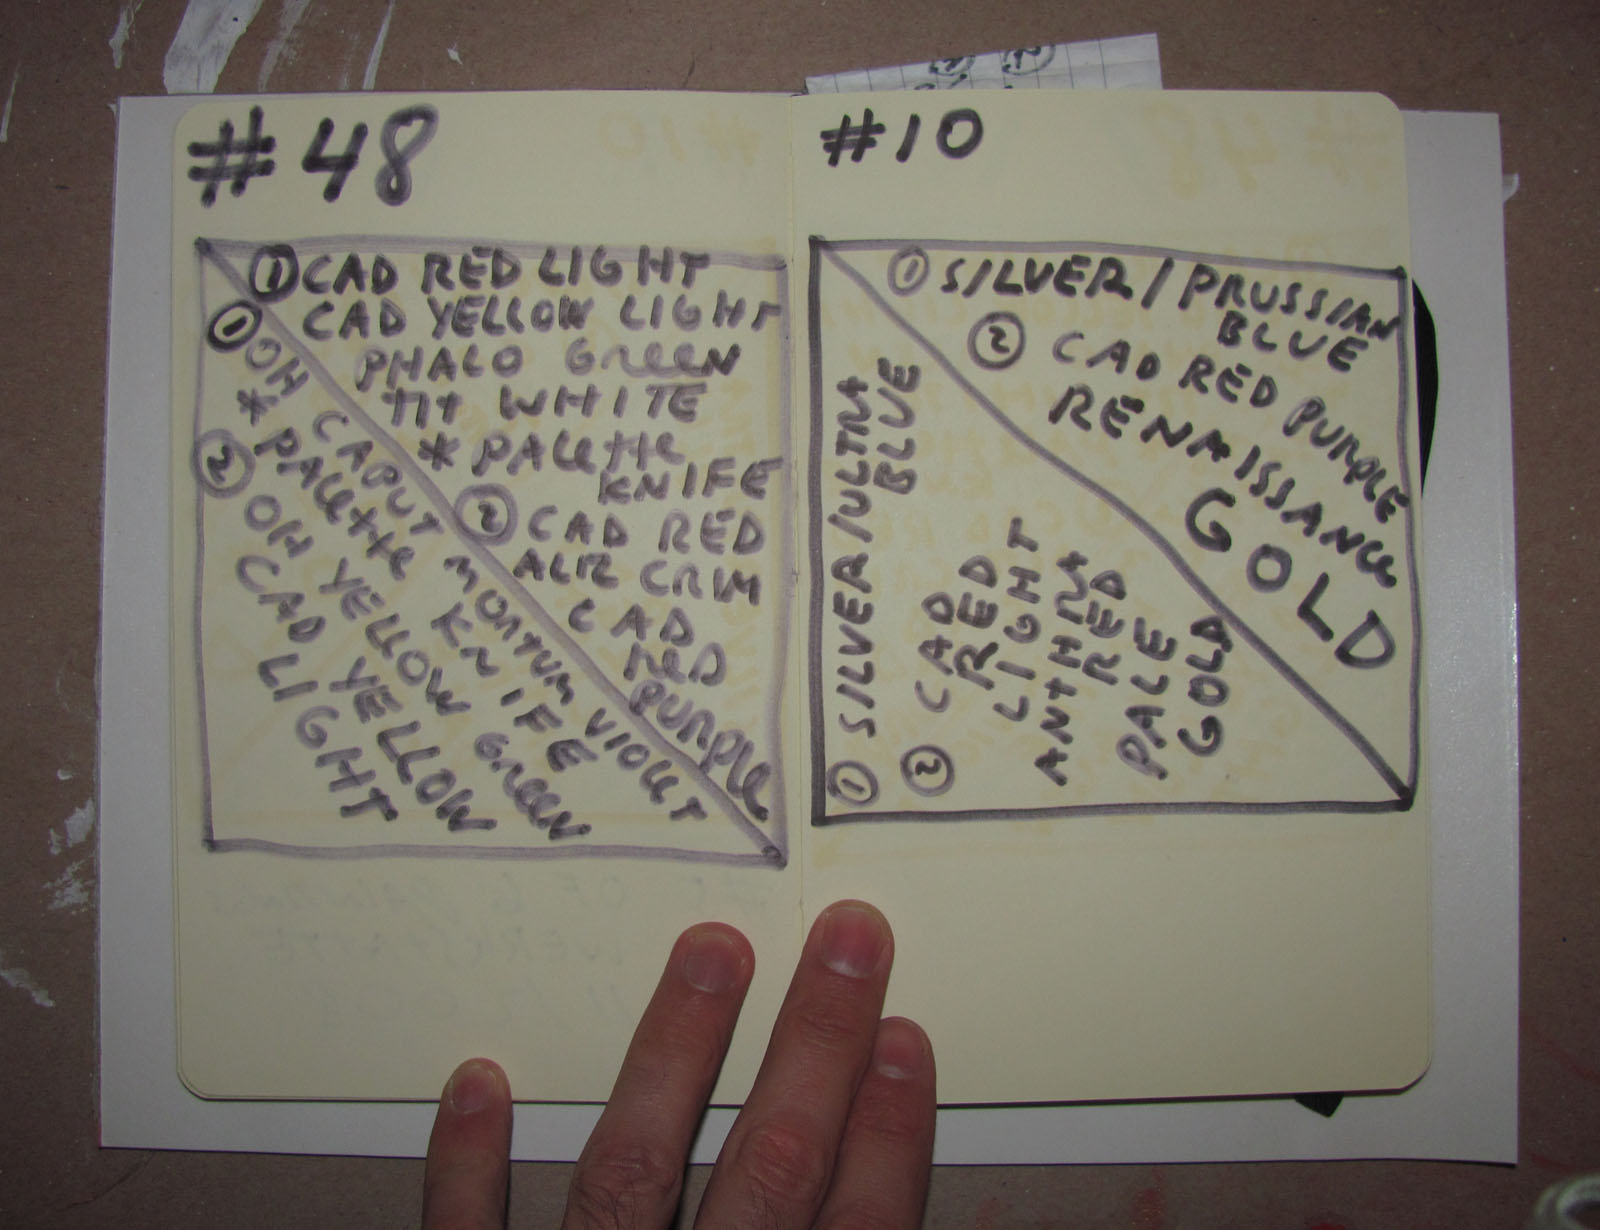 #48
① CAD RED LIGHT
CAD YELLOW LIGHT
PHALO GREEN
TIT WHITE
* PALETTE
KNIFE
② CAD RED
ALIZ CRIM
CAD
RED
PURPLE
① OH CAPUT MORTUM VIOLET
* PALETTE KNIFE
② OH YELLOW GREEN
CAD YELLOW
LIGHT
#10
① SILVER/PRUSSIAN
BLUE
② CAD RED PURPLE
RENAISSANCE
GOLD
① SILVER/ULTRA
BLUE
② CAD
RED
LIGHT
ANTHRA
RED
PALE
GOLD